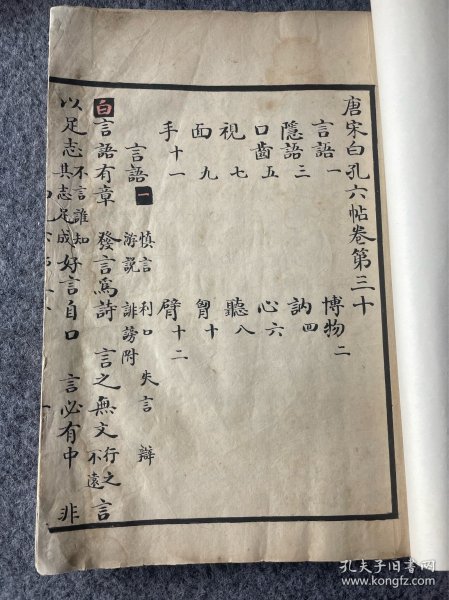 唐宋白孔六帖卷第三十
言語一 博物二
隱語三 訥四
口齒五 心六
視七 聽八
面九 胷十
手十一 臂十二
言語 一 慎言 利口 失言 辯
游説 誹謗附
白 言語有章 發言爲詩 言之無文 行之不遠 言
以足志 不言誰知其志 足成 好言自口 言必有中 非
孔夫子旧书网
www.kongfz.com